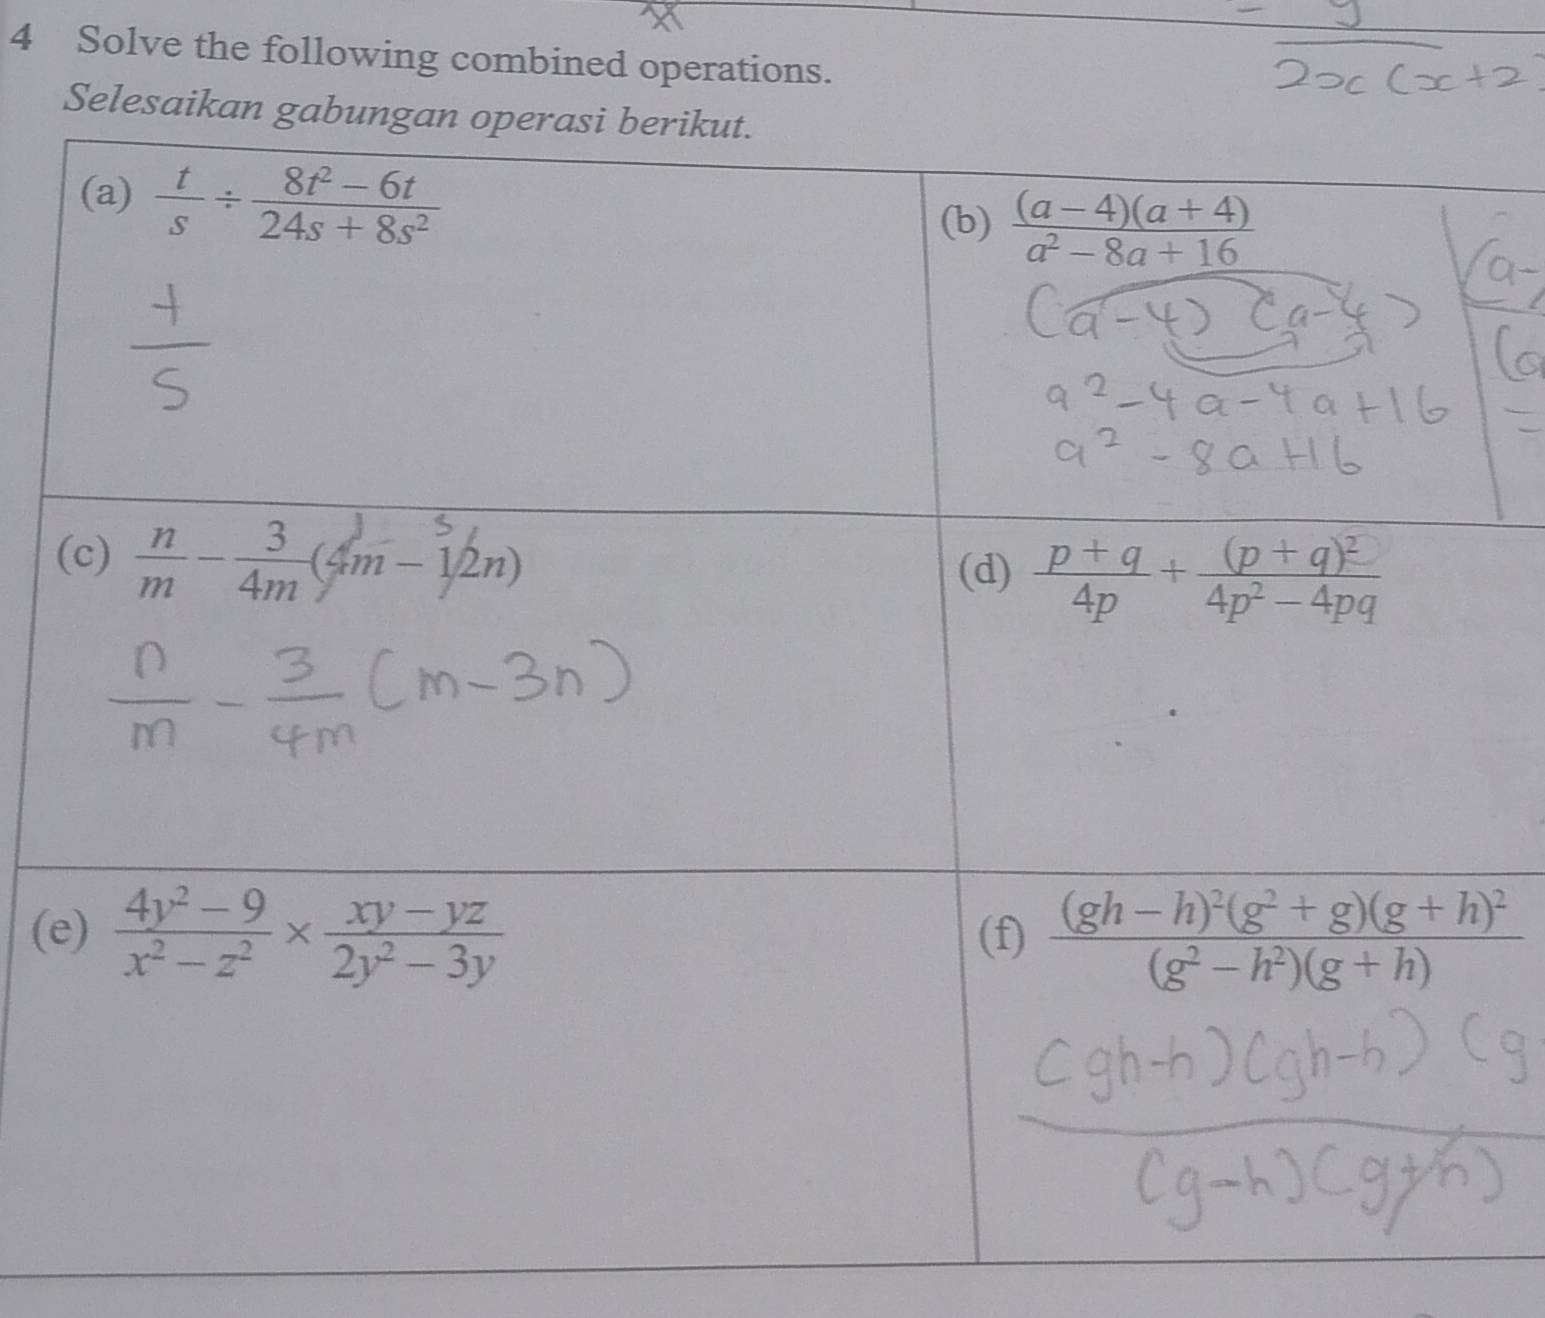 2x(x+2
4 Solve the following combined operations.
Selesaikan gabungan operasi berikut.
(a) t/s ÷ (8t² − 6t)/(24s + 8s²)
t/s
(b) (a − 4)(a + 4)/(a² − 8a + 16)
(a-4) (a-4)
a²-4a-4a+16
a²-8a+16
(c) n/m − 3/4m (4m − 12n)
n/m - 3/4m (m-3n)
(d) (p + q)/4p + (p + q)²/(4p² − 4pq)
(e) (4y² − 9)/(x² − z²) × (xy − yz)/(2y² − 3y)
(f) (gh − h)²(g² + g)(g + h)²/((g² − h²)(g + h))
(gh-h)(gh-h)(g
(g-h)(g+h)